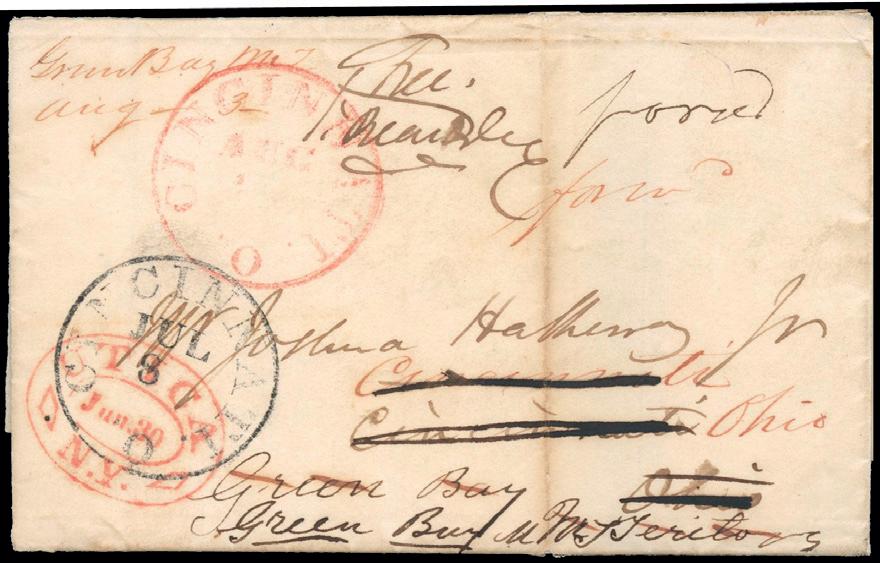 Green Bay M T
Aug 3
Free.
Beardsley
forwd
forw
CINCINNATI. O.
AUG
CINCINNATI. O
JUL
8
UTICA N.Y.
Jun. 30
Mr Joshua Hathaway Jr
Cincinnati
Cincinnati Ohio
Green Bay Ohio
Green Bay M Teritory